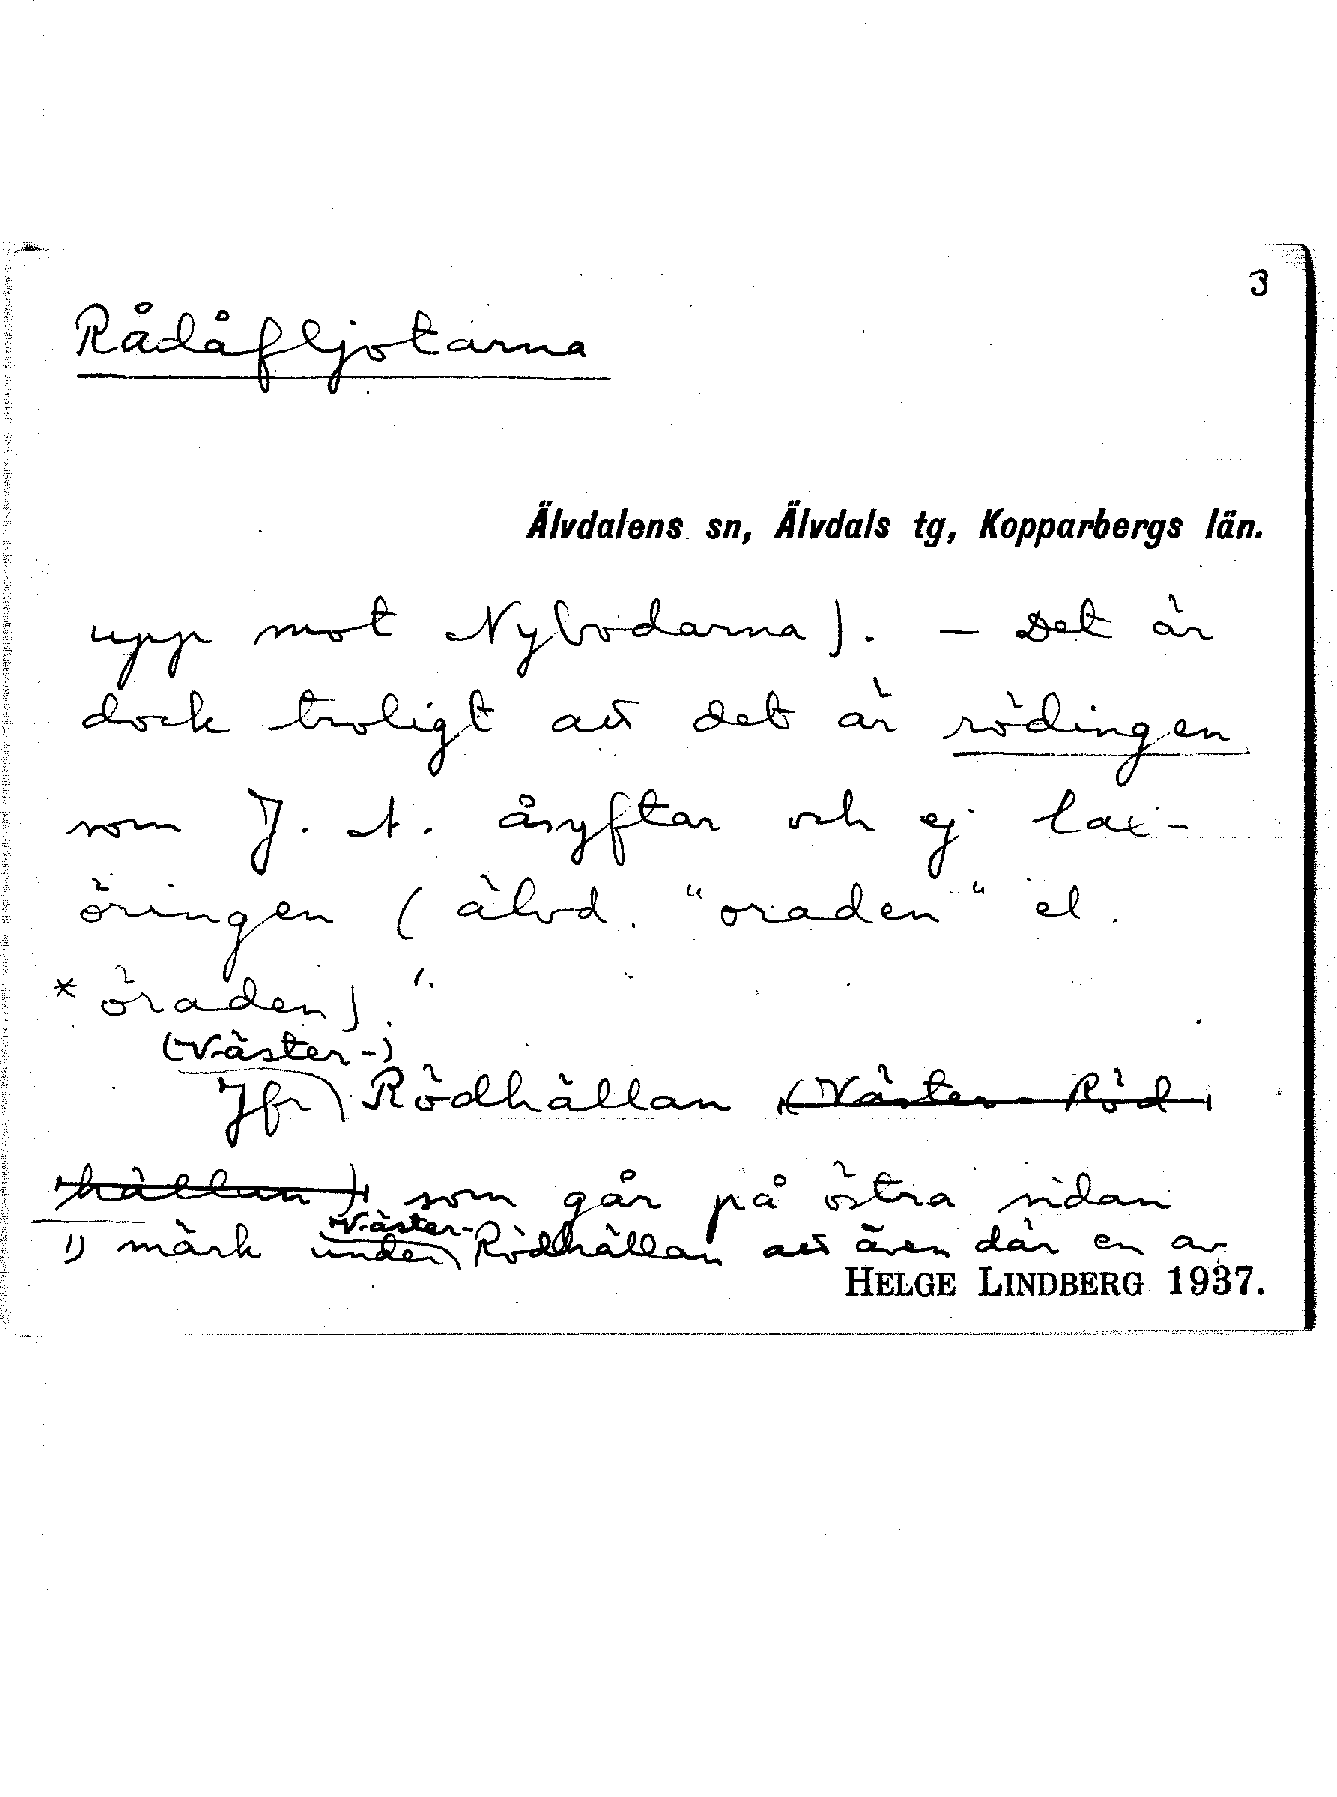 3
Rådåfljotarna
Älvdalens sn, Älvdals tg, Kopparbergs län.
upp mot Nybodarna). — Det är
dock troligt att det är rödingen
som J. A. åsyftar och ej lax-
öringen (älvd. "oraden" el.
*öraden). 1.
(Väster-)
Jfr Rödhällan (Väster-Röd
hällan) som går på östra sidan
Väster-
1) märk under Rödhällan att även där en av
HELGE LINDBERG 1937.